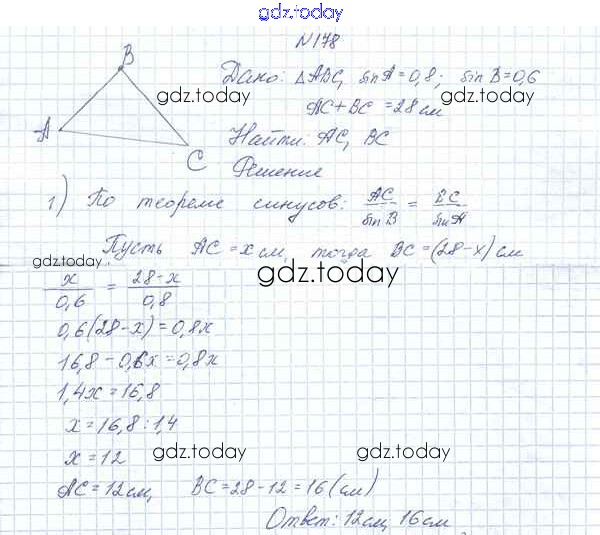 gdz.today
№178
B
Дано: △ABC, sin A = 0,8; sin B = 0,6
gdz.today
gdz.today
AC + BC = 28 см
A
Найти: AC, BC
C
Решение
1) По теореме синусов: AC/sin B = BC/sin A
Пусть AC = x см, тогда BC = (28 - x) см
gdz.today
gdz.today
x/0,6 = 28 - x/0,8
0,6(28 - x) = 0,8x
16,8 - 0,6x = 0,8x
1,4x = 16,8
x = 16,8 : 1,4
gdz.today
gdz.today
x = 12
AC = 12 см, BC = 28 - 12 = 16 (см)
Ответ: 12 см, 16 см